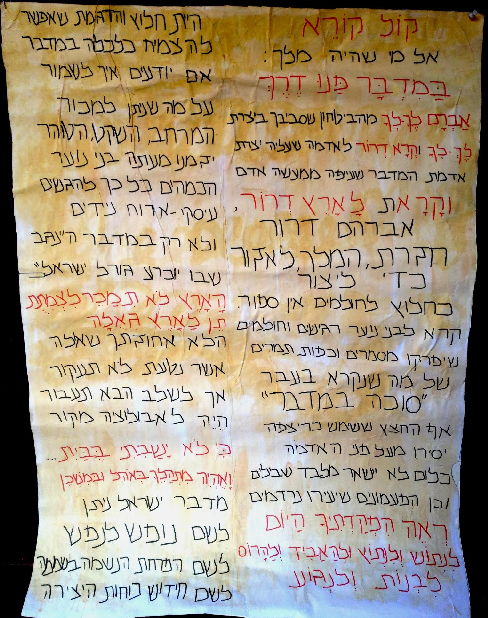 קול קורא
אל מי שהיה מלך:
בַּמִּדְבָּר פַּנּוּ דֶּרֶךְ
אַבְרָהָם לֶךְ-לְךָ מהביטחון שסביבך ביצרת
לֶךְ-לְךָ וּקְרָא דְרוֹר לאדמה שעליה יצרת
אדמת המדבר שעיפה ממעשה אדם
וְקָרָאתָ לָאָרֶץ דְּרוֹר,
אברהם דרור
חקרת, המלך לאקור
כדי ליצור
כחלוץ לחולמים אין ספור
קרא לבני נוער רגשים וחולמים
שיפרקו מסמרים וכפות תמרים
של מה שנקרא בעבר
"סוכה במדבר"
אף החצץ ששימש כריצפה
יסירו מעל פני האדמה
כלום לא ישאר מלבד שבילים
וכן הפעמונים שיעירו נרדמים
רְאֵה הִפְקַדְתִּיךָ הַיּוֹם
לִנְתוֹשׁ וְלִנְתוֹץ וּלְהַאֲבִיד וְלַהֲרוֹס
לִבְנוֹת וְלִנְטוֹעַ
היית חלוץ והדגמת שאפשר
להצמיח כלכלה במדבר
אם יודעים איך לשמור
על מה שנתן למכור
המרחב, השקט, הטוהר
יזמנו מעתה בני נוער
הכמהים כל כך להגשים
עיסקי-אירוח ניידים
ולא רק במדבר ה"נגב
שבו יוכרע גורל ישראל"
הָאָרֶץ לֹא תִמָּכֵר לִצְמִתֻת
תנו לָאָרֶץ גאולה
הלא אחוזתך שאלה
אשר נטעת לא תעקור
אך לשלב הבא תעבור
היה לאבולוציה מקור
כִּי לֹא יָשַׁבְתִּי בְּבַיִת...
וָאֶהְיֶה מִתְהַלֵּךְ בְּאֹהֶל וּבְמִשְׁכָּן
מדבר ישראל ניתן
לשם נופש לנפש
לשם הפחת הנשמה בשממה
לשם חידוש ביחות היצירה